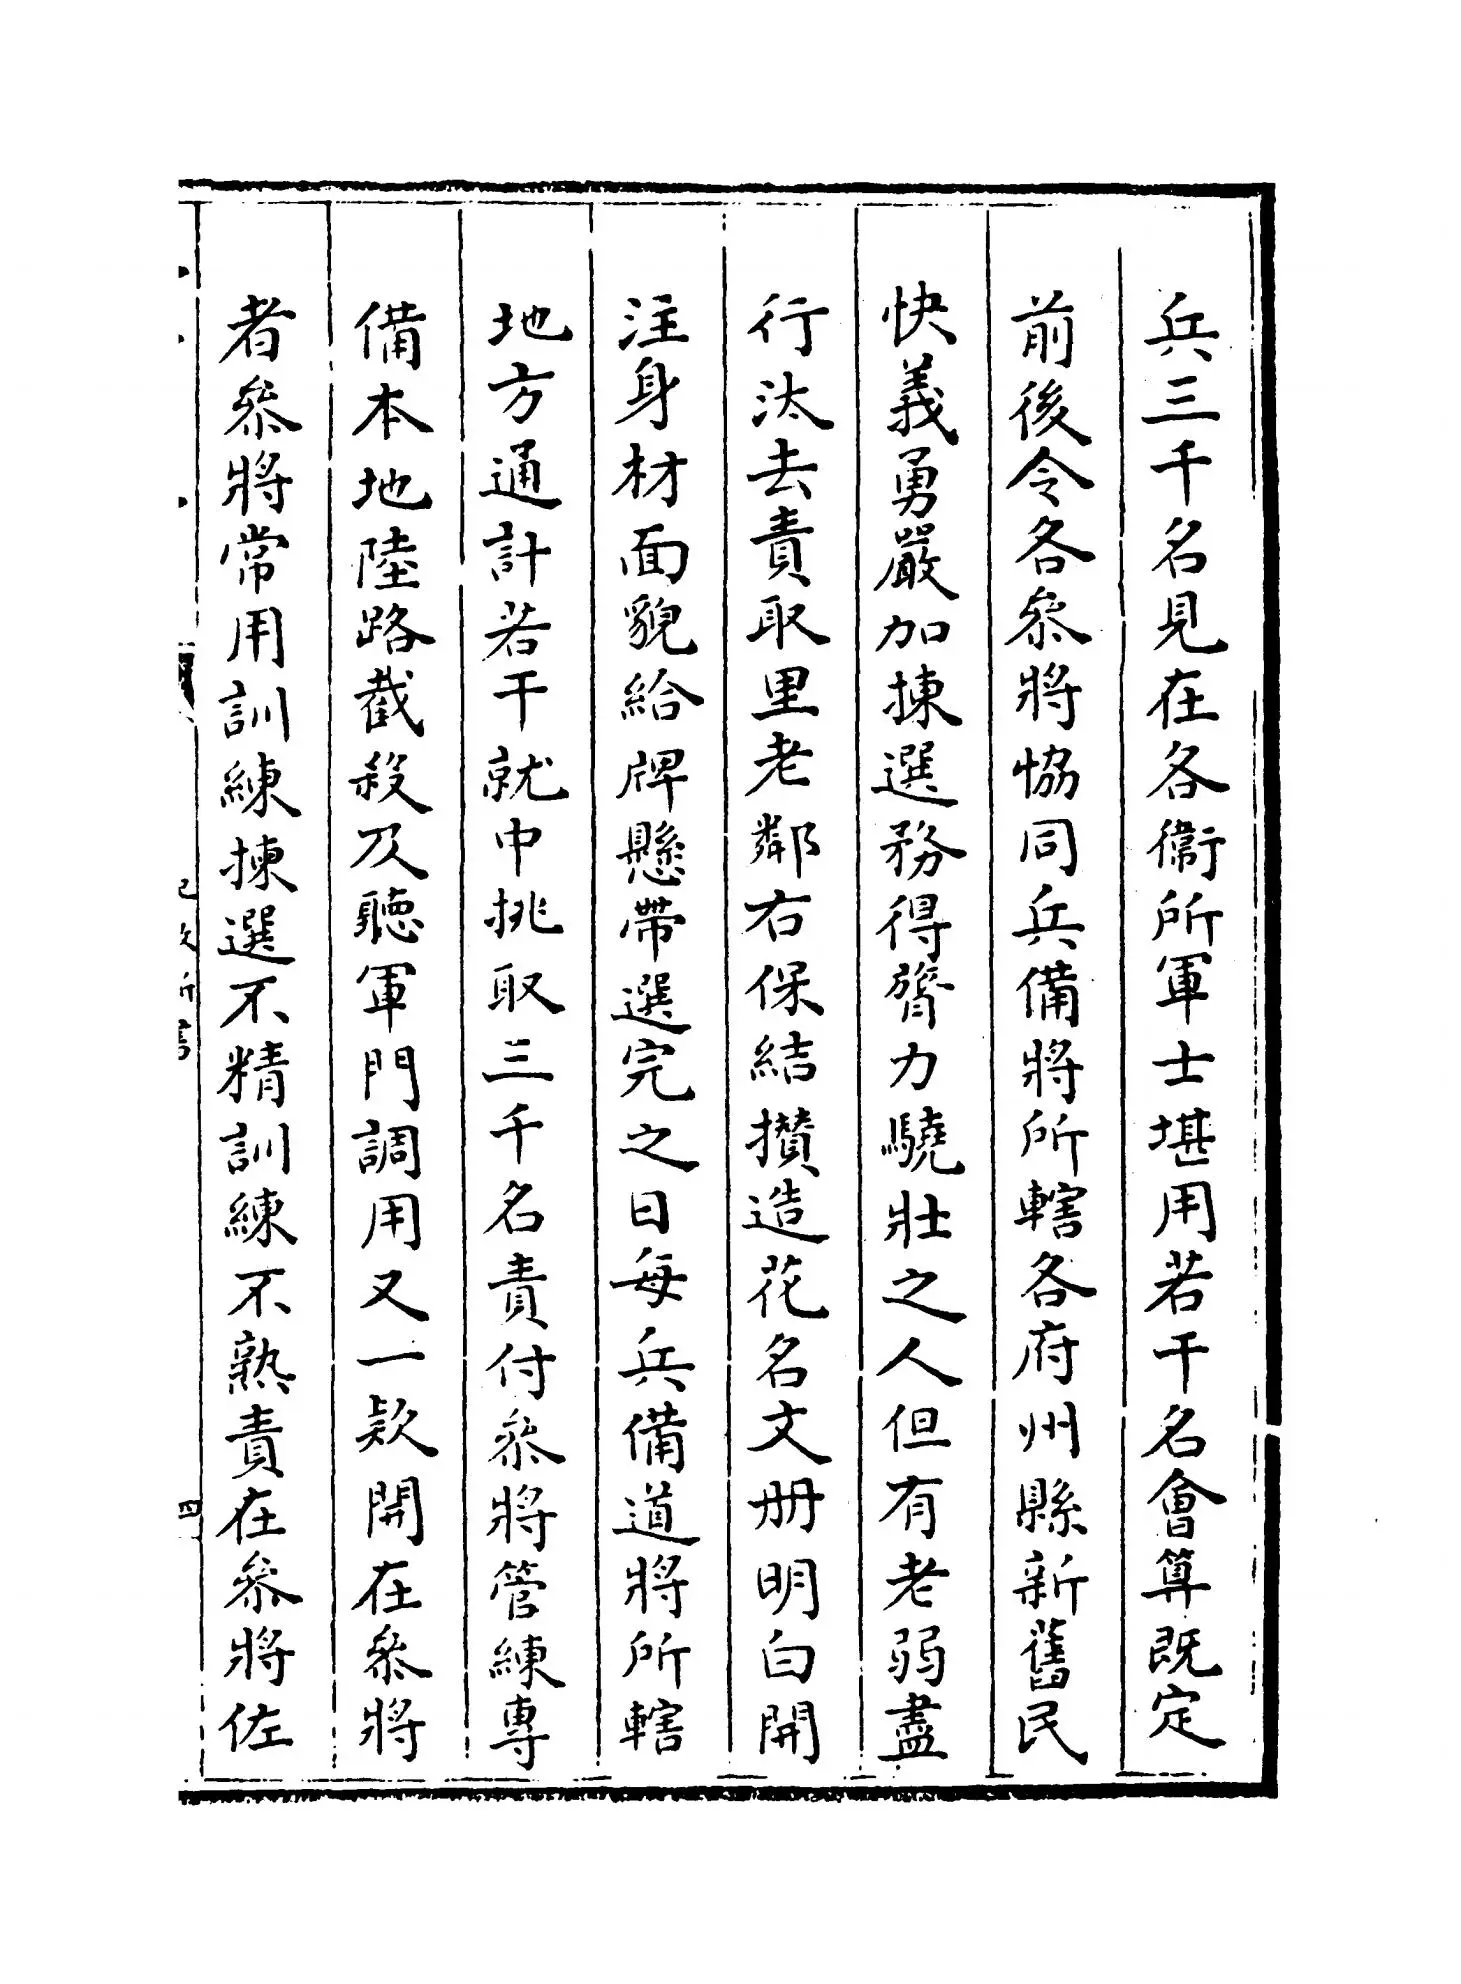 兵三千名見在各衛所軍士堪用若干名會算既定
前後令各叅將恊同兵備將所轄各府州縣新舊民
快義勇嚴加揀選務得膂力驍壯之人但有老弱盡
行汰去責取里老鄰右保結攅造花名文册明白開
注身材面貌給牌懸帶選完之日每兵備道將所轄
地方通計若干就中挑取三千名責付叅將管練專
備本地陸路截殺及聽軍門調用又一欵開在叅將
者叅將常用訓練揀選不精訓練不熟責在叅將佐
紀效新書
四